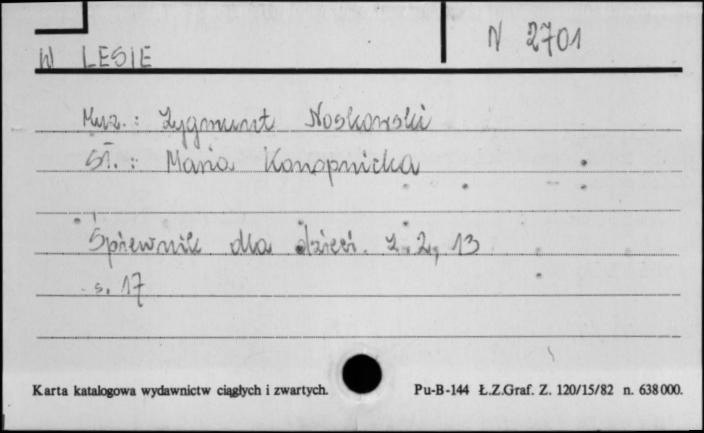 W LESIE
N 2701
Muz.: Zygmunt Noskowski
Sł.: Maria Konopnicka
Śpiewnik dla dzieci. Z. 2, 13
s. 17
Karta katalogowa wydawnictw ciągłych i zwartych.
Pu-B-144 Ł.Z.Graf. Z. 120/15/82 n. 638000.